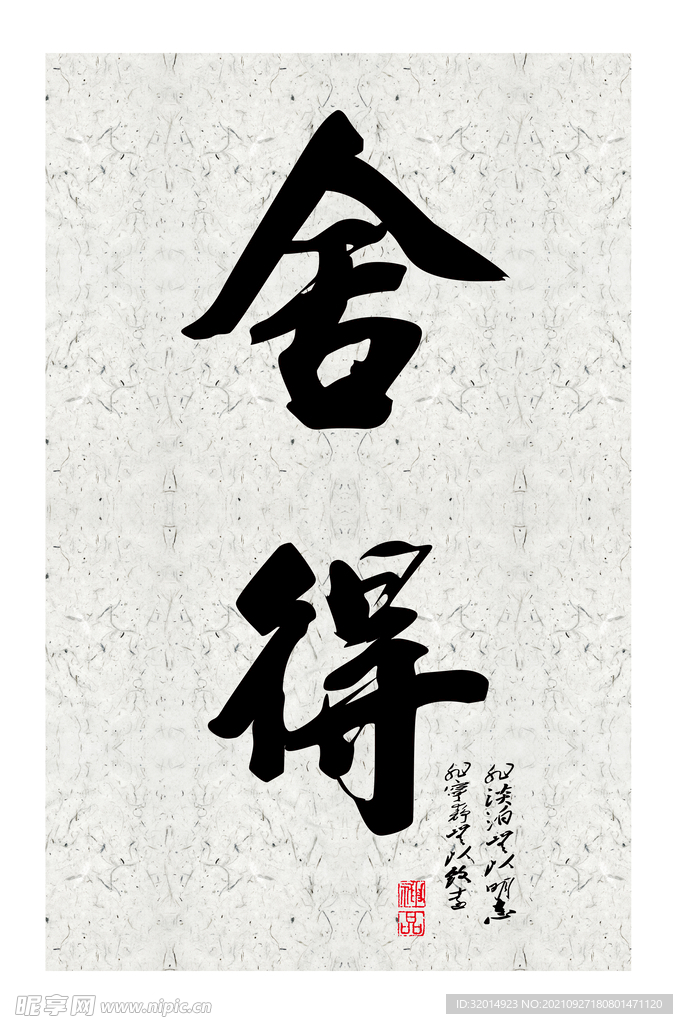 舍
得
非淡泊無以明志
非寧靜無以致遠
品
昵享网 www.nipic.cn
ID:32014923 NO:20210927180801471120